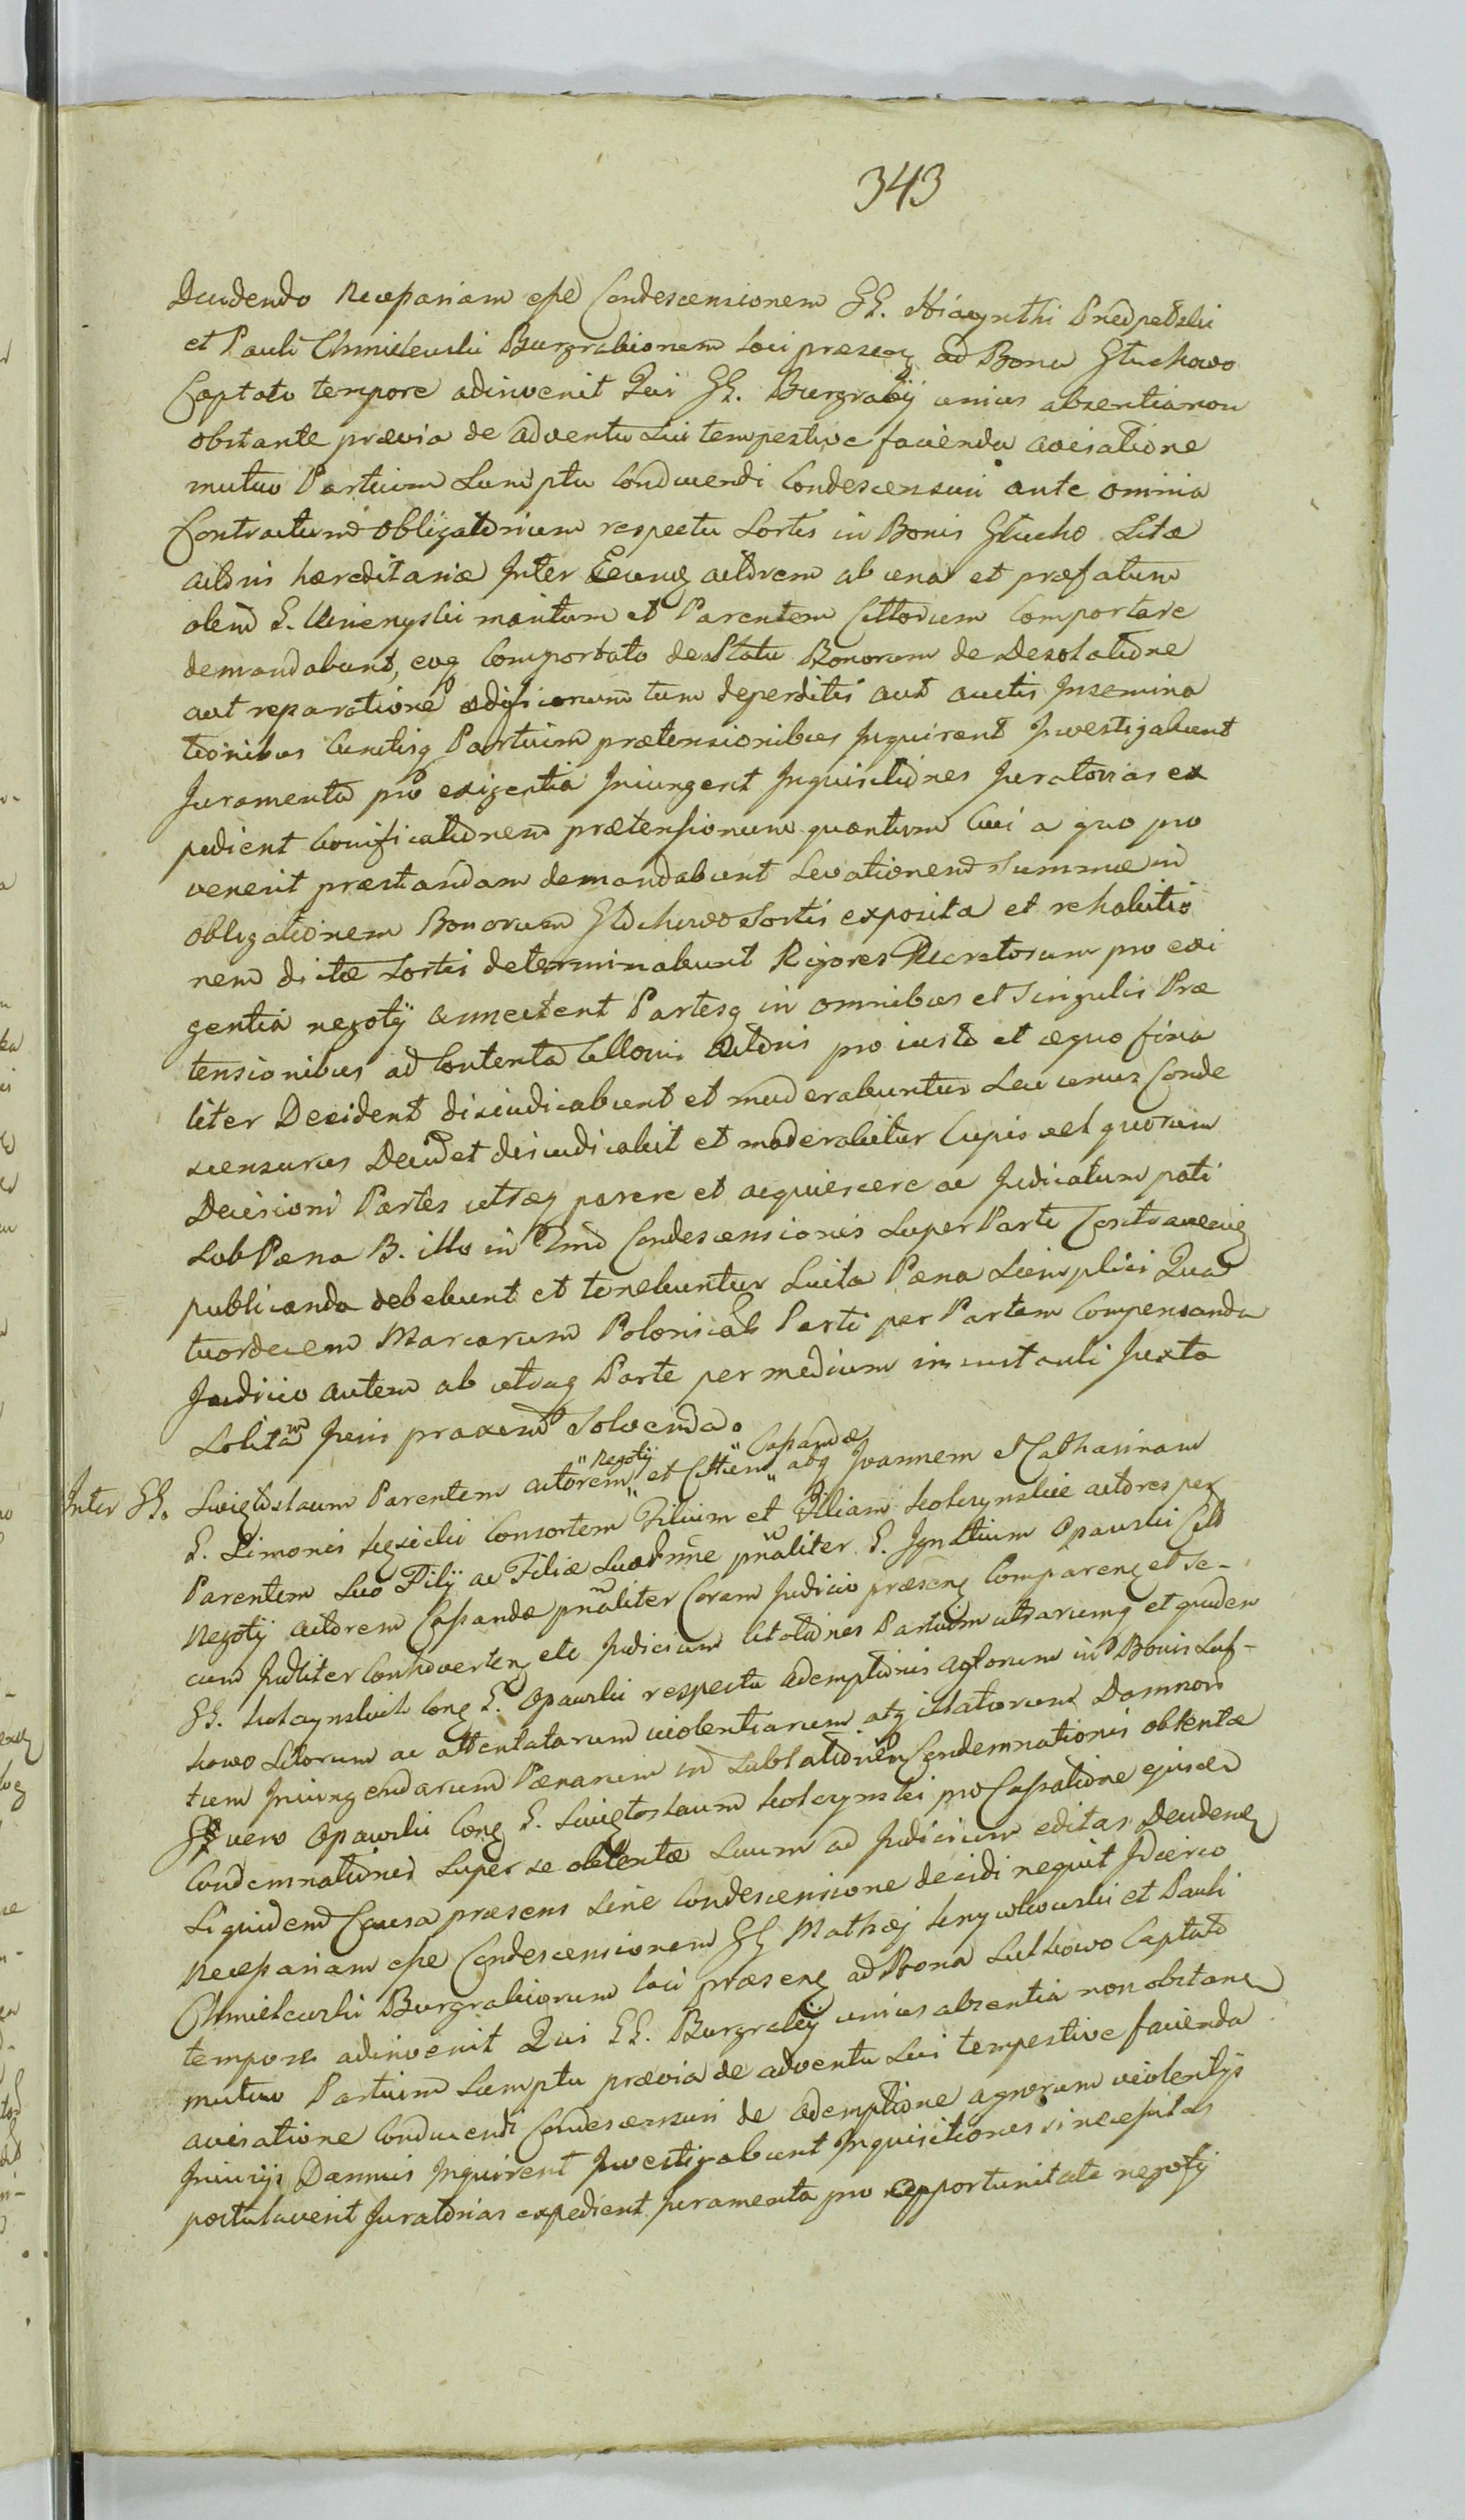 343
Decidendo necessariam esse Condescensionem GG. Hiacynthi Przedpełski
et Pauli Chmielewski Burgrabionem loci præsenq ad Bona Głuchowo
Captato tempore adinvenit Qui GG. Burgrabij unius absentia non
obstante prævia de adventu sui tempestive facienda avisatione
mutuo Partium Sumptu conducendi Condescensuri ante omnia
Contractum obligatorium respectu Sortis in Bonis Głucho Sitæ
actoris hæreditariæ Inter Eeunq actorem ab una et præfatum
olim G. maritum et Parentem Cittorum Comportare
demandabunt, eoq Comportato de Statu Bonorum de Desolatione
aut reparatione ædificiorum tum deperditis aut auctis Insemina
tionibus Cunctisq Partium prætensionibus Inquirent Investigabunt
Juramenta pro exigentia Iniungent Inquisitiones Juratorias ex
pedient bonificationem prætensionum quantum Cui a quo pro
venerit præstandam demandabunt Levationem Summæ in
obligationem Bonorum Głuchowo Sortis exposita et rehabitio
nem dictæ Sortis determinabunt Rigores Decretorum pro exi
gentia negotij annectent Partesq in omnibus et Singulis Præ
tensionibus ad Contenta actoris pro iusto et æquo fina
liter Decident diiudicabunt et moderabuntur Seu unus Conde
scensurus Decidet deiudicabit et moderabitur Cujus vel quorum
Decisioni Partes utræq parere et acquiescere ac Judicatum pati
sub Pæna B. illo in Condescensionis Super Parte Contraveniq
publicanda debebunt et tenebuntur Luita Pæna Simplici Qua
tuordecem Marcarum Polonical Parti per Partem Compensanda
Judicio autem ab utraq Parte per medium in instanti Juxta
Solitam Juris praxim Solvenda.
Inter GG. Swiętosłaum Parentem actorem "Negotij" et Cittum "Cassandæ" atq Joannem et Catharinam
G. Simonis Consortem Filium et Filiam Kolczynskie actores per
Parentem Suo Filij ac Filiæ Suæ nne pnaliter G. Ignatium Opawski Citt
Negotij actorem Cassandæ pnaliter Coram Judicio præsenq Comparenq et Se-
cum Judliter Controvertenq etc Judicium Citationes Partium utrarumq et quidem
GG. Kolczynskich Conq G. Opawski respectu ademptionis agrorum in Bonis Sul-
kowo Sitorum ac attentatarum violentiarum atq illatorum Damnor
tum Iniungendarum Pænarum in Sublationem Condemnationis obtentæ
G vero Opawski Conq G. Swiętosłaum Kolczynski pro Cassatione ejusd
Condemnationis Super se obtentæ Suum ad Judicium editas Decidenq
Siquidem Causa præsens Sine Condescensione decidi nequit Idcirco
Necessariam esse Condescensionem GG Mathæj et Pauli
Chmielewski Burgrabiorum loci præsenq ad Bona Sulkowo Captato
tempore adinvenit Qui GG. Burgrabij unius absentia non obstanq
mutuo Partium Sumptu prævia de adventu Sui tempestive facienda
avisatione Conducendi Condescensuri de ademptione agrorum violentijs
Iniurijs Damnis Inquirent Investigabunt Inquisitiones si necessitas
postulaverit Juratorias expedient Juramenta pro opportunitate negotij
Inter